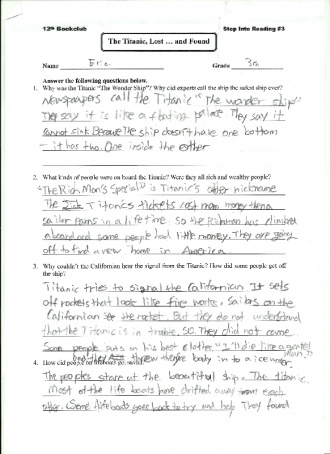 12th Bookclub Step Into Reading #3
The Titanic, Lost ... and Found
Name Eric Grade 3rd
Answer the following questions below.
1. Why was the Titanic "The Wonder Ship"? Why did experts call the ship the safest ship ever?
Newspapers call the Titanic "The wonder ship"
They say it is like a floating palace They say it
cannot sink Because the ship doesn't have one bottom
- it has two. One inside the other
2. What kinds of people were on board the Titanic? Were they all rich and wealthy people?
"The Rich Man's Special" is Titanic's other nickname
The Titanics tickets cost more money then a
sailor earns in a lifetime. So the Richman has climbed
aboard and some people had little money. They are going
off to find a new home in America
3. Why couldn't the Californian hear the signal from the Titanic? How did some people get off
the ship?
Titanic tries to signal the Californian It sets
off rockets that look like fire works. Sailors on the
Californian see the rocket. But they do not understand
that the Titanic is in trouble. So They did not come.
Some people puts on his best clothe. "I'll die like a
threw body in to a ice water
4. How did people
The peoples stare at the beautiful ship. The Titanic.
Most of the life boats have drifted away from each
other. Some lifeboats goes back to try and help They found